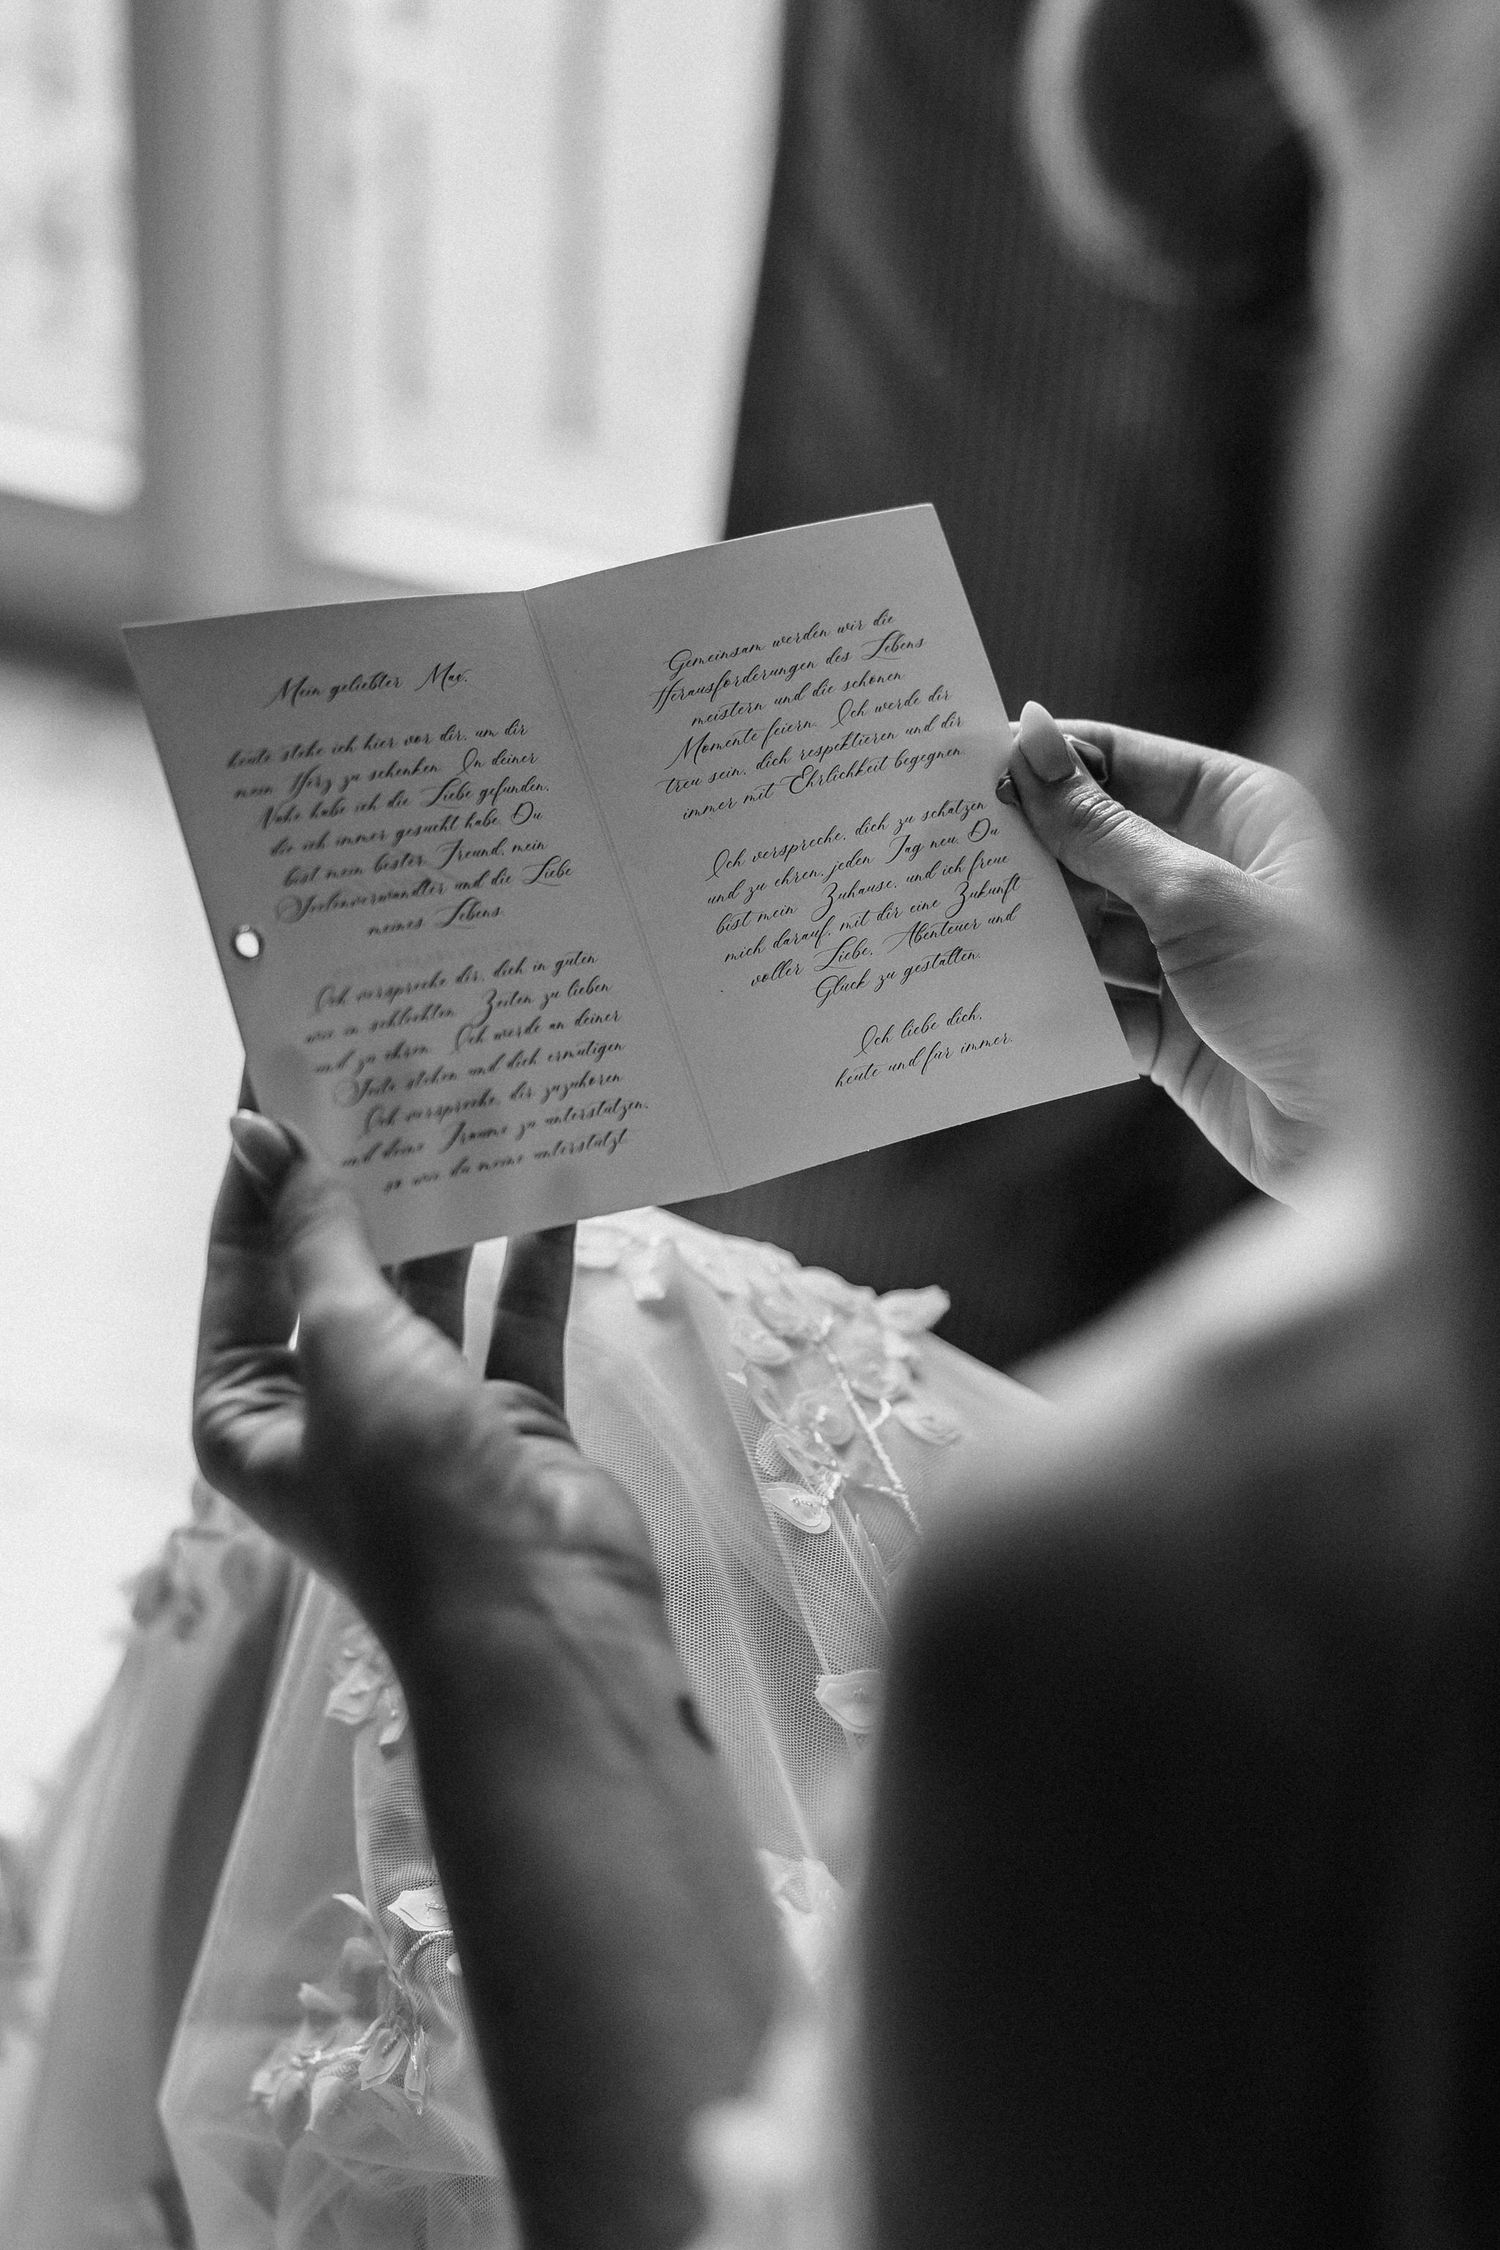 Mein geliebter Max,
heute stehe ich hier vor dir, um dir
mein Herz zu schenken. In deiner
Nähe habe ich die Liebe gefunden,
die ich immer gesucht habe. Du
bist mein bester Freund, mein
Seelenverwandter und die Liebe
meines Lebens.
Ich verspreche dir, dich in guten
wie in schlechten Zeiten zu lieben
und zu ehren. Ich werde an deiner
Seite stehen und dich ermutigen.
Ich verspreche, dir zuzuhören
und deine Träume zu unterstützen,
so wie du meine unterstützt.
Gemeinsam werden wir die
Herausforderungen des Lebens
meistern und die schönen
Momente feiern. Ich werde dir
treu sein, dich respektieren und dir
immer mit Ehrlichkeit begegnen.
Ich verspreche, dich zu schätzen
und zu ehren, jeden Tag neu. Du
bist mein Zuhause, und ich freue
mich darauf, mit dir eine Zukunft
voller Liebe, Abenteuer und
Glück zu gestalten.
Ich liebe dich,
heute und für immer.